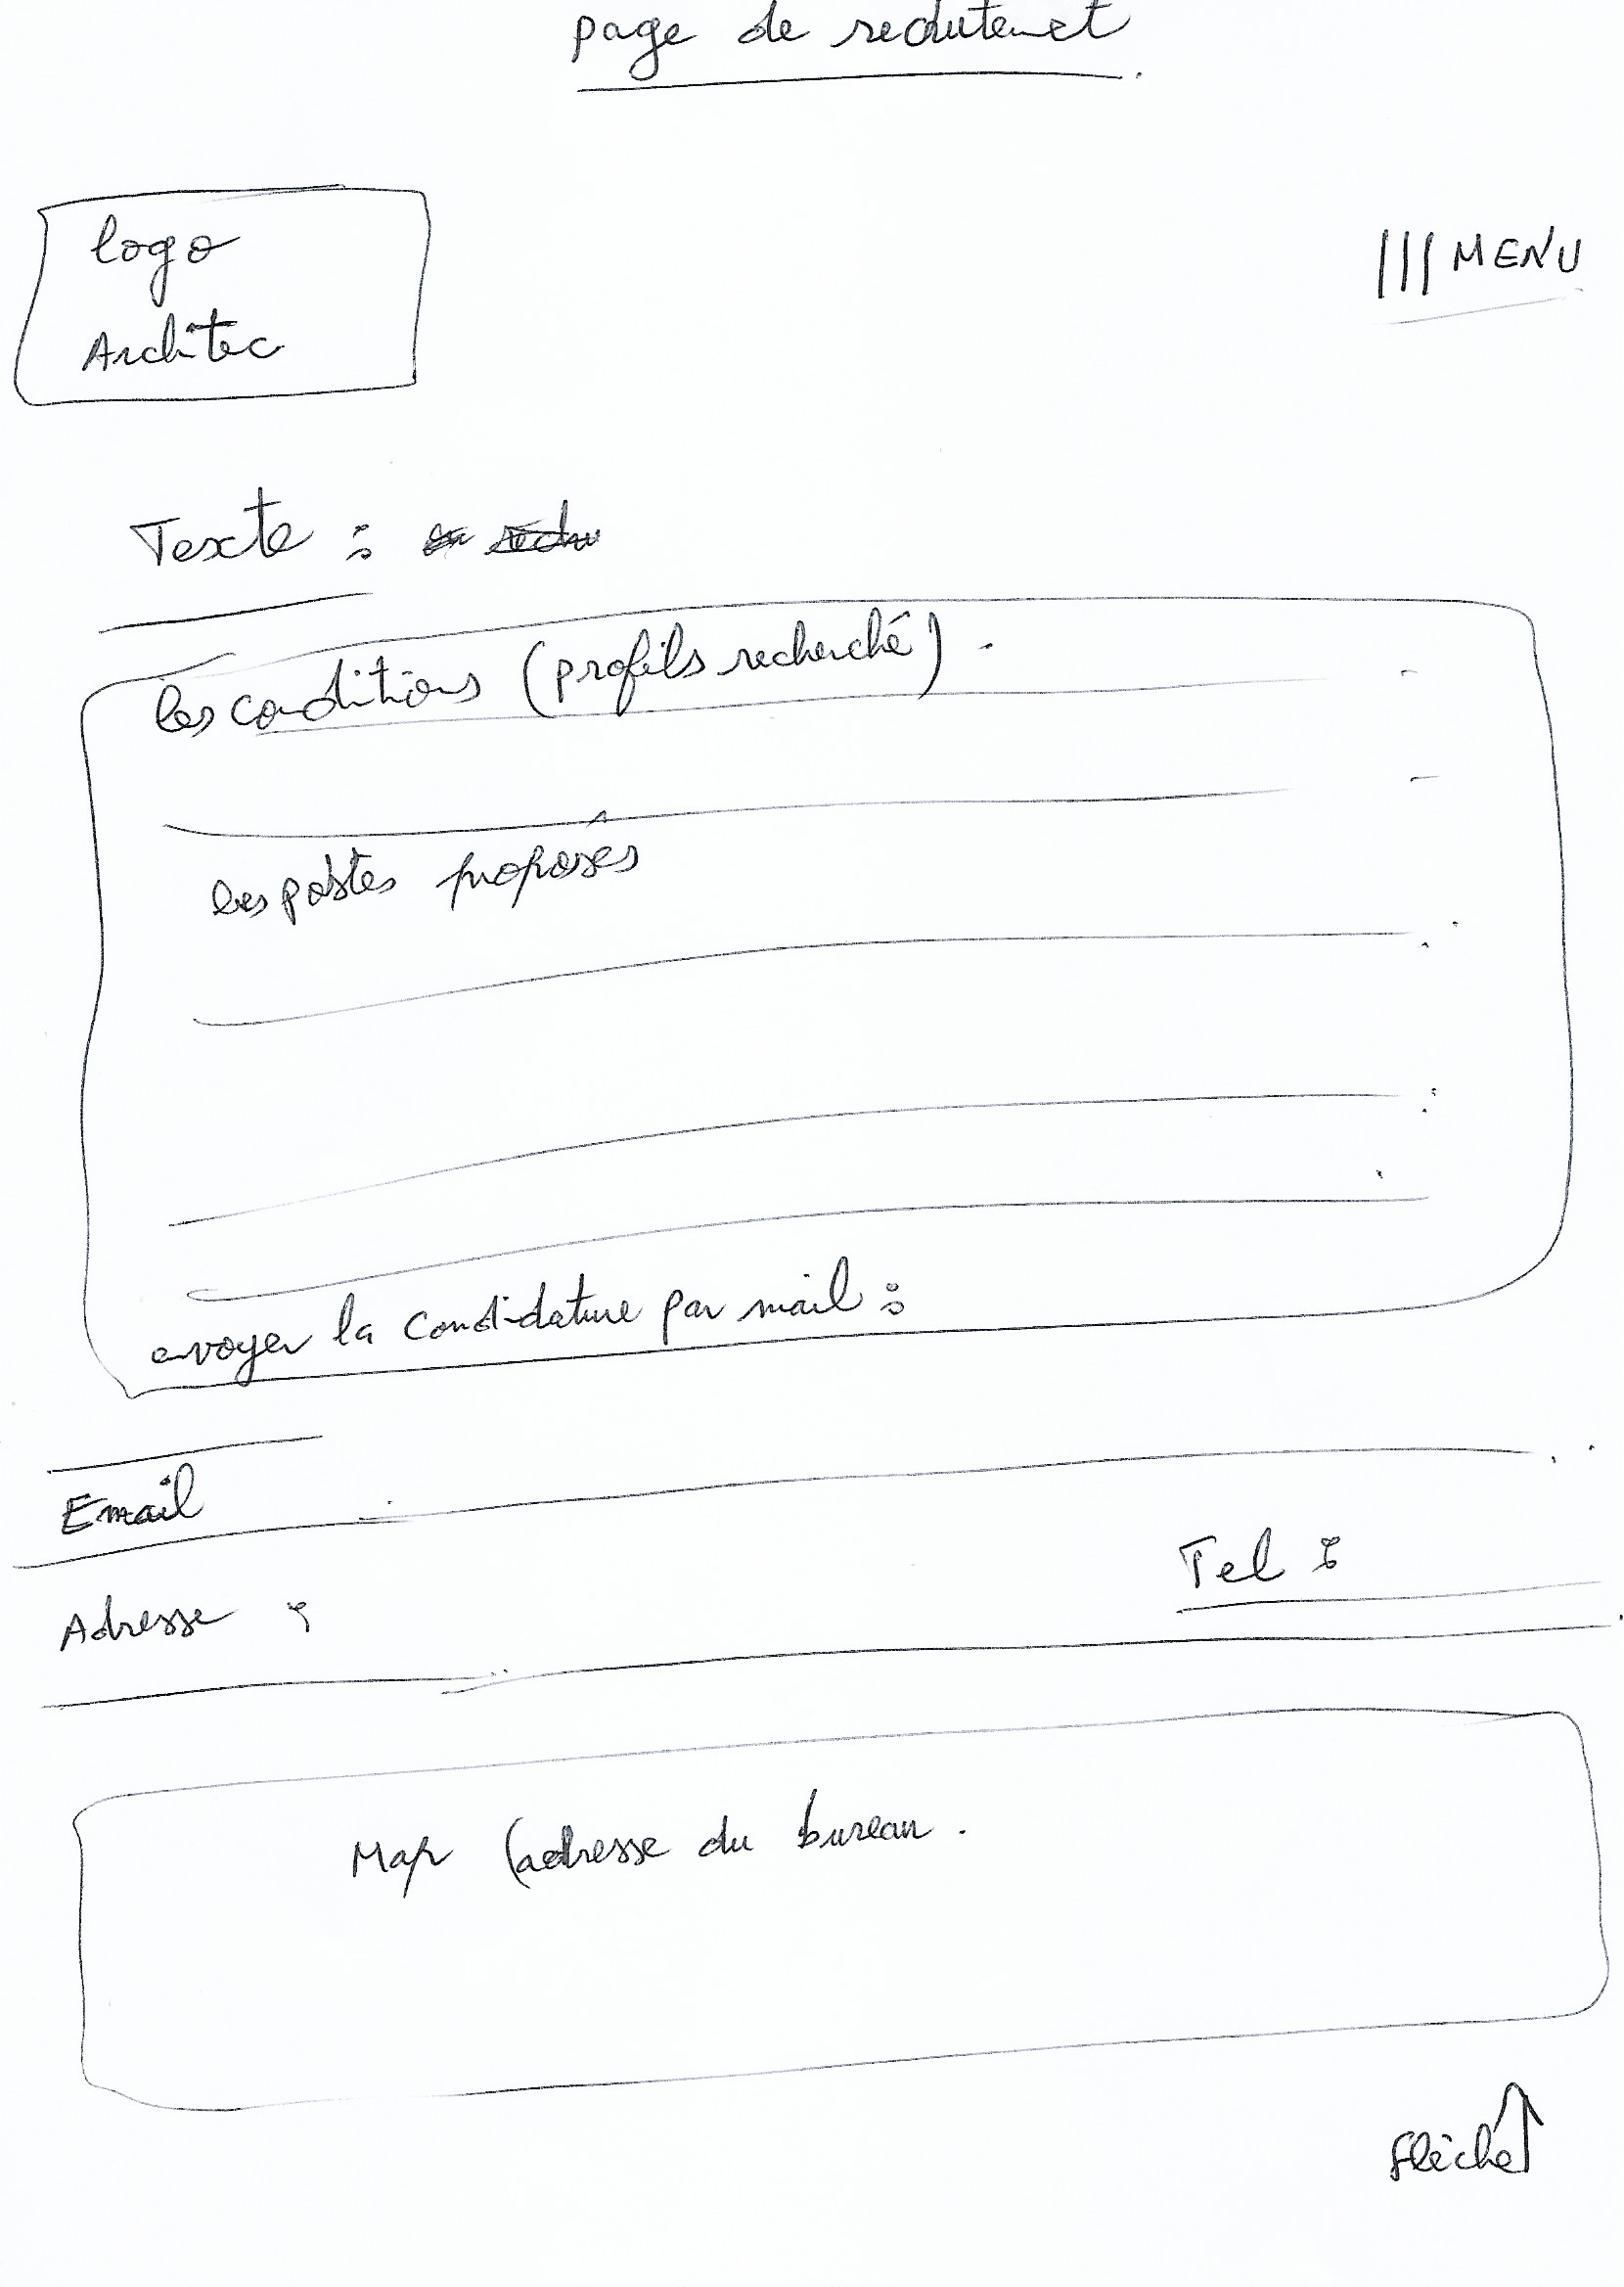 page de recrutement
logo
Architec
||| MENU
Texte :
les conditions (profils recherché).
les postes proposés
envoyer la candidature par mail :
Email
Tel :
Adresse :
Map (adresse du bureau.
flèche ↑